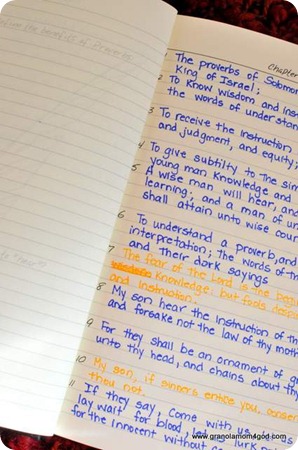 Chapter
1 The proverbs of Solomon
King of Israel;
2 To know wisdom and ins
the words of understan
3 To receive the instruction
and judgment, and equity;
4 To give subtilty to the sim
young man knowledge and
5 A wise man will hear, and
learning; and a man of un
shall attain unto wise coun
6 To understand a proverb, and
interpretation; the words of th
and their dark sayings
7 The fear of the Lord is the begin
knowledge, but fools despis
and instruction.
8 My son hear the instruction of th
and forsake not the law of thy moth
9 For they shall be an ornament of g
unto thy head, and chains about thy
10 My son, if sinners entice you, consen
thou not.
11 If they say, Come with us,
lay wait for blood, let us lurk
for the innocent without
www.granolamom4god.com